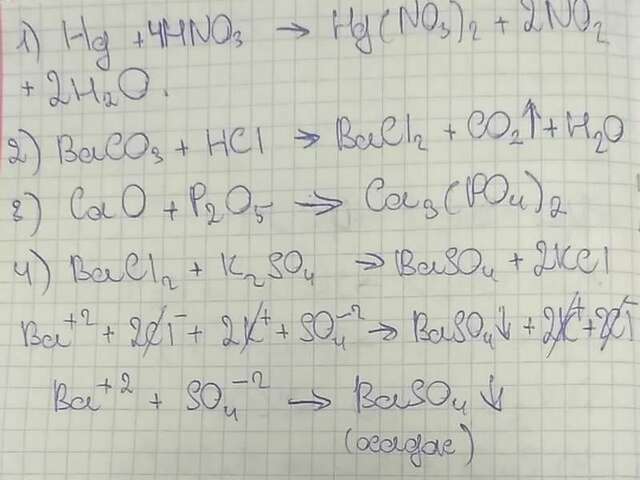 1) Hg + 4HNO₃ → Hg(NO₃)₂ + 2NO₂
+ 2H₂O.
2) BaCO₃ + HCl → BaCl₂ + CO₂↑ + H₂O
3) CaO + P₂O₅ → Ca₃(PO₄)₂
4) BaCl₂ + K₂SO₄ → BaSO₄ + 2KCl
Ba⁺² + 2Cl⁻ + 2K⁺ + SO₄⁻² → BaSO₄↓ + 2K⁺ + 2Cl⁻
Ba⁺² + SO₄⁻² → BaSO₄ ↓
(осадає)